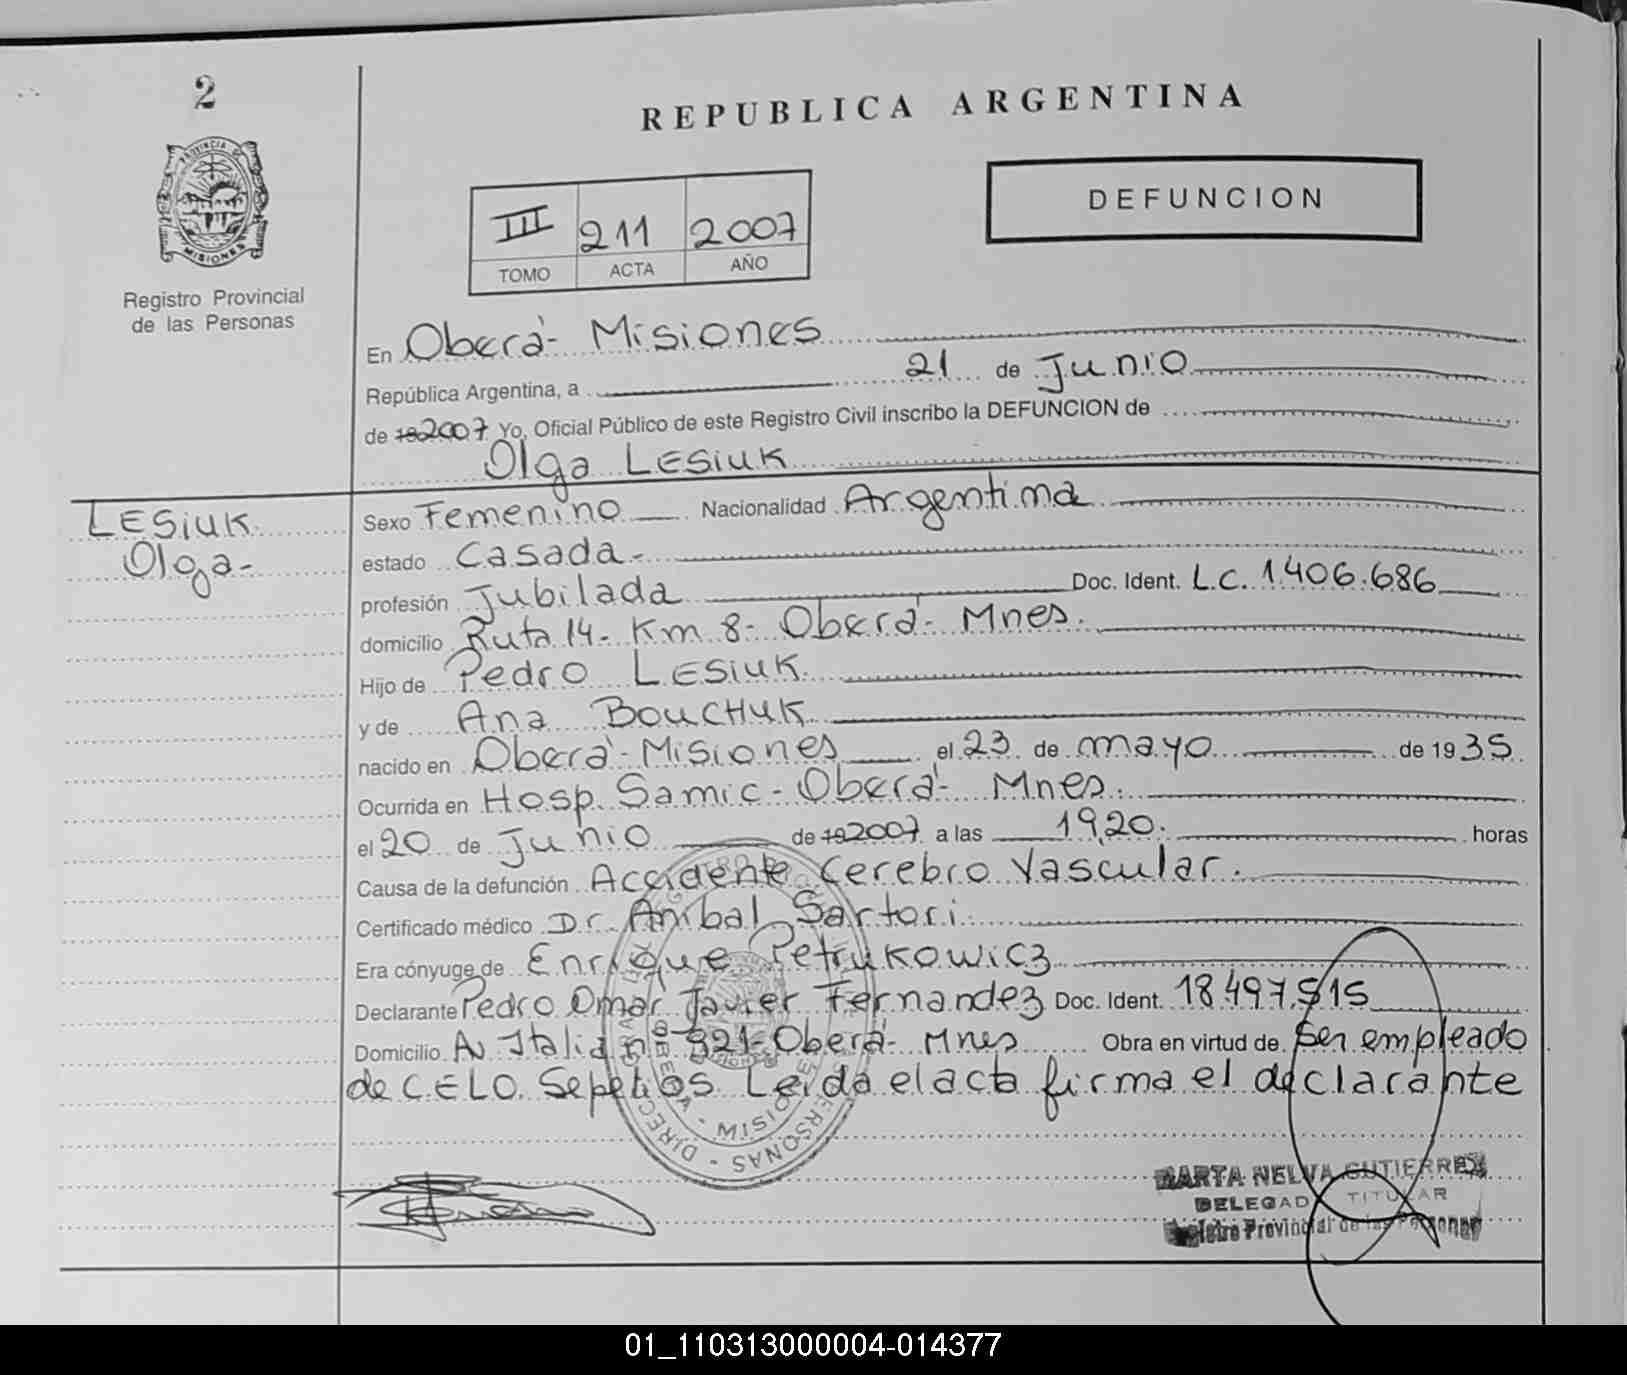 2
REPUBLICA ARGENTINA
PROVINCIA DE
MISIONES
Registro Provincial
de las Personas
III 211 2007
TOMO ACTA AÑO
DEFUNCION
En Oberá - Misiones
República Argentina, a 21 de Junio
de 19 2007 Yo, Oficial Público de este Registro Civil inscribo la DEFUNCION de
Olga LESIUK
LESIUK
Olga-
Sexo Femenino Nacionalidad Argentina
estado Casada.-
profesión Jubilada Doc. Ident. L.C. 1.406.686
domicilio Ruta 14- Km 8- Oberá- Mnes.
Hijo de Pedro LESIUK
y de Ana BOUCHUK
nacido en Oberá - Misiones el 23 de mayo de 1935
Ocurrida en Hosp. Samic - Oberá- Mnes.
el 20 de Junio de 19 2007 a las 19,20. horas
Causa de la defunción Accidente Cerebro Vascular.
Certificado médico Dr. Anibal Sartori
Era cónyuge de Enrique Petrukowicz
Declarante Pedro Omar Javier Fernandez Doc. Ident. 18.497.515
Domicilio Av Italia nº 321- Oberá- Mnes Obra en virtud de Ser empleado
de C.E.L.O. Sepelios. Leida el acta firma el declarante
MISIONES
PERSONAS
MARTA NELVA GUTIERREZ
DELEGAD TITULAR
Registro Provincial de las Personas
01_110313000004-014377